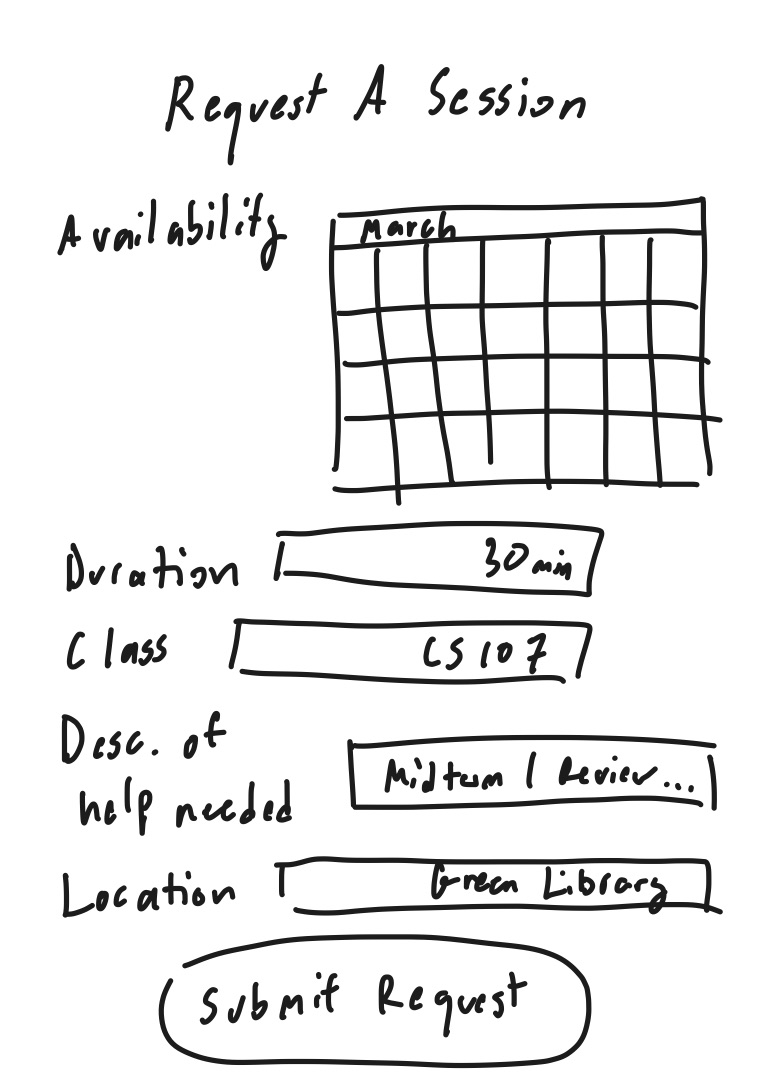 Request A Session
Availability
March
Duration
30 min
Class
CS 107
Desc. of
help needed
Midterm 1 Review...
Location
Green Library
Submit Request